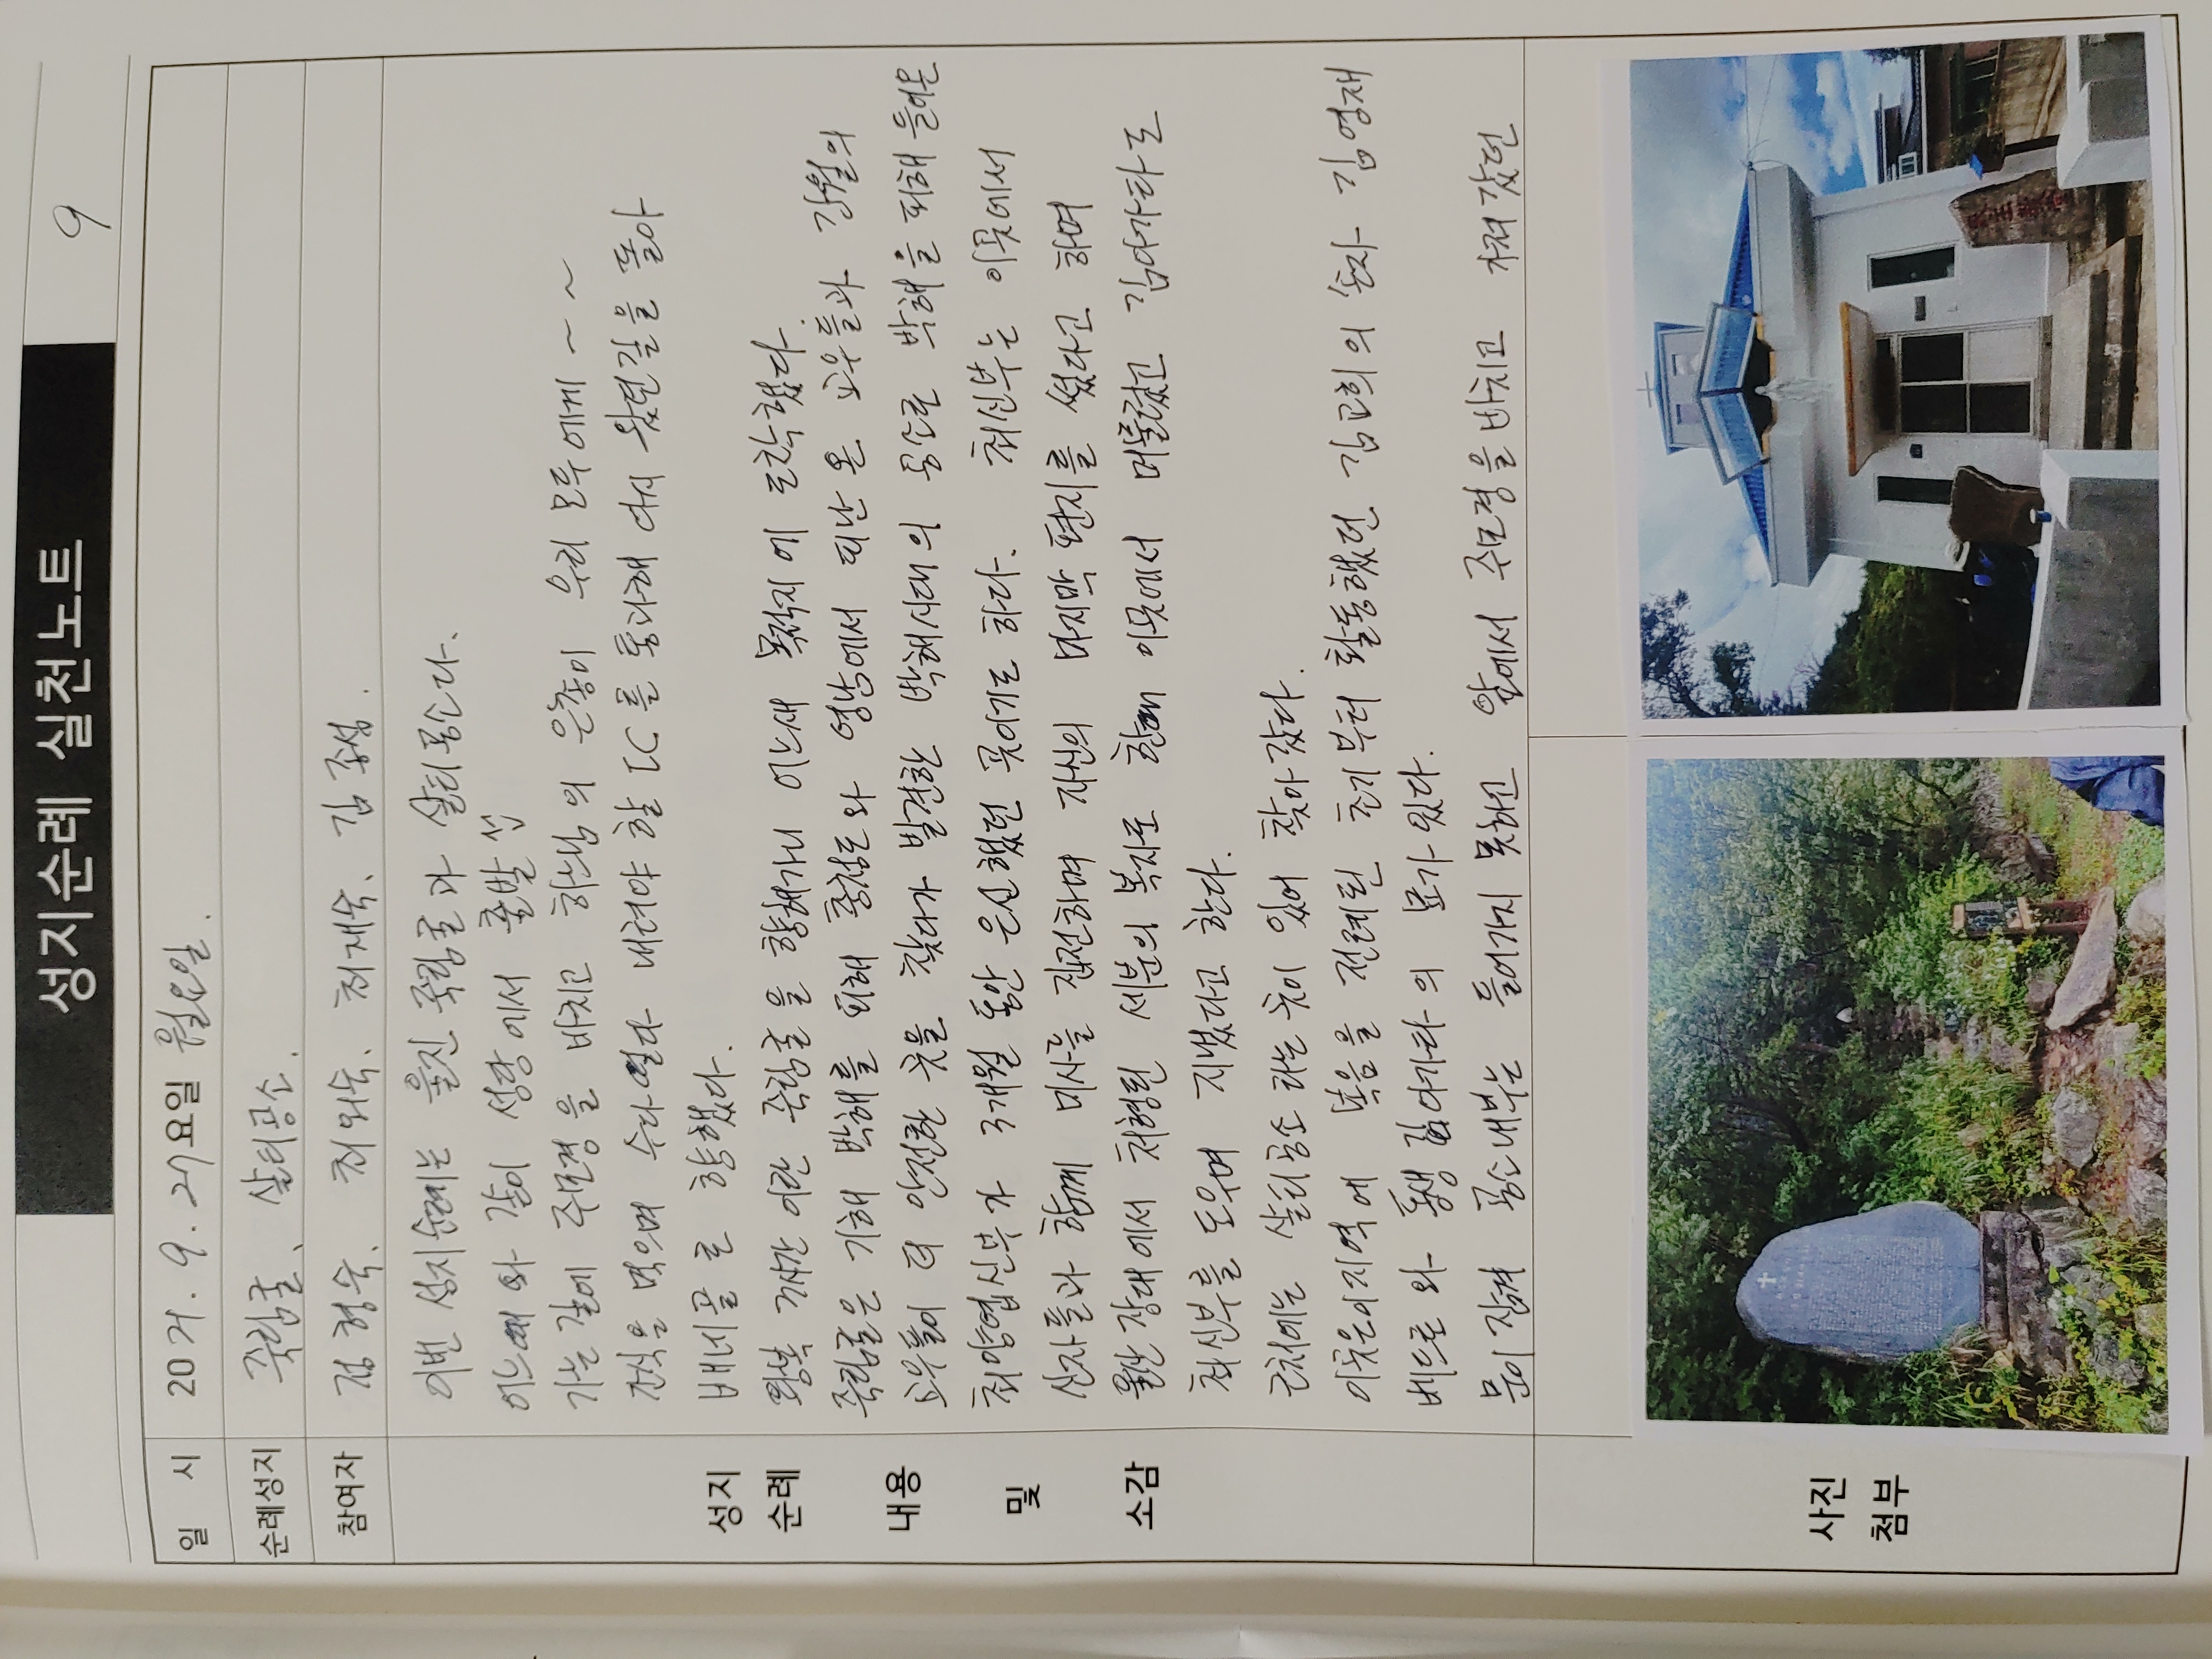 성지순례 실천노트
9
일 시 2021. 9. 27요일 월요일.
순례성지 죽림굴, 살티공소.
참여자 정형숙, 최외숙, 최재숙, 김종섬.
성지
순례
내용
및
소감
이번 성지순례는 울진 죽림굴과 살티공소다.
어느때와 같이 성당에서 출발
가는길에 주모경을 바치고 하느님의 은총이 우리 모두에게~~
간식을 먹으며 수다떨다 내려야 할 IC를 통과해 다시 왔던길을 돌아
배네골로 향했다.
왕복 3시간 이란 죽림굴을 향해가니 어느새 목적지에 도착했다.
죽림굴은 기해 박해를 피해 충청도와 영남에서 피난 온 교우들과 간월의
교우들이 더 안전한 곳을 찾다가 발견한 박해시대의 공소로 박해을 피해 들어온
최양업신부가 3개월 동안 은신했던 곳이기도 하다. 최신부는 이곳에서
신자들과 함께 미사를 집전하며 자신의 마지막 편지를 썼다고 하며
울산 장대에서 처형된 세분의 복자도 한때 이곳에서 머물렀고 김아가타도
최신부를 도우며 지냈다고 한다.
근처에는 살티공소 라는 곳이 있어 찾아갔다.
이곳은이지역에 복음을 전례된 초기부터 활동했던 김교희의 손자 김영재
베드로와 동생 김아가타의 묘가 있다.
문이 잠겨 공소내부는 들어가지 못하고 앞에서 주모경을 바치고 가져갔던
사진
첨부